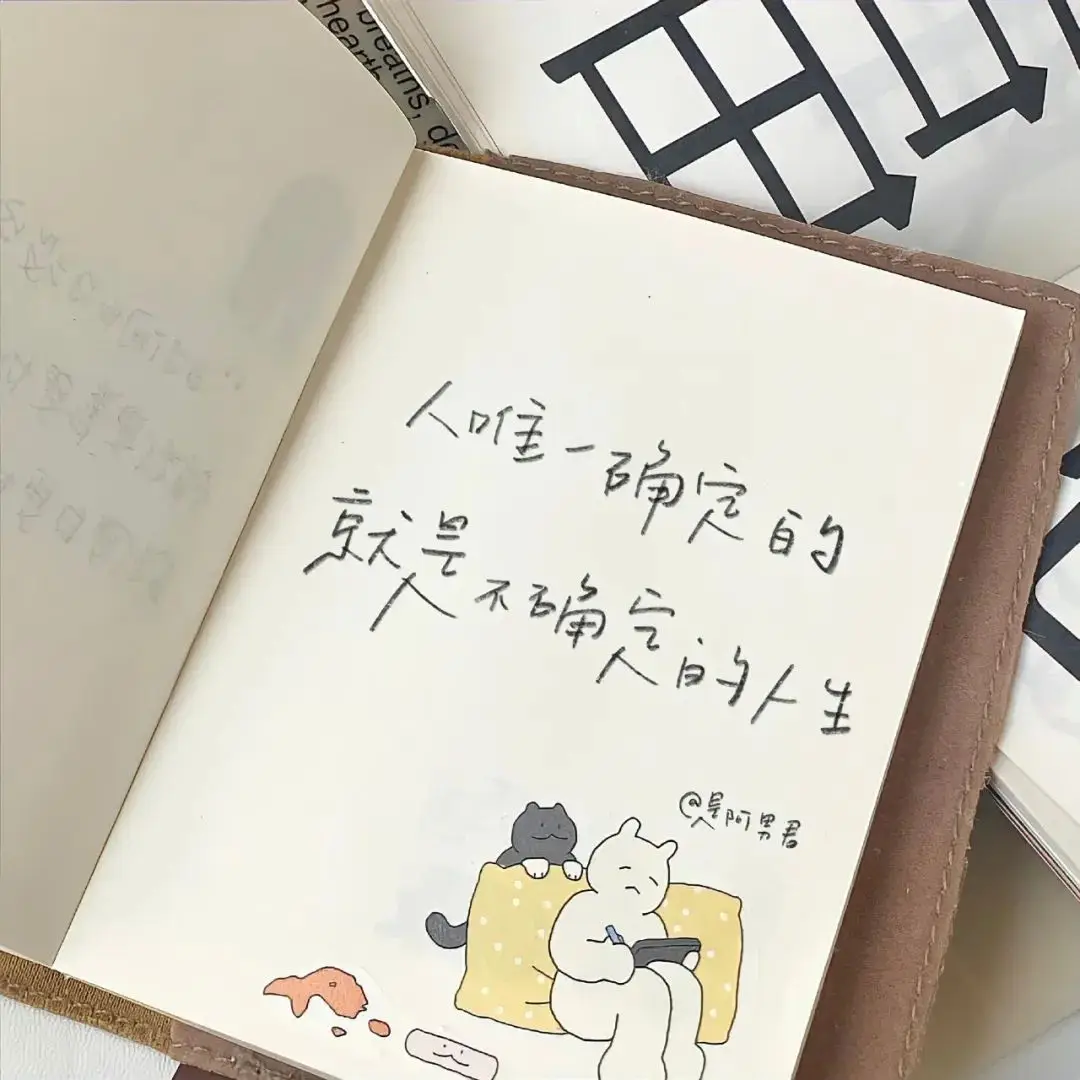 brains, de
hearth
人唯一确定的
就是不确定的人生
@是阿男君